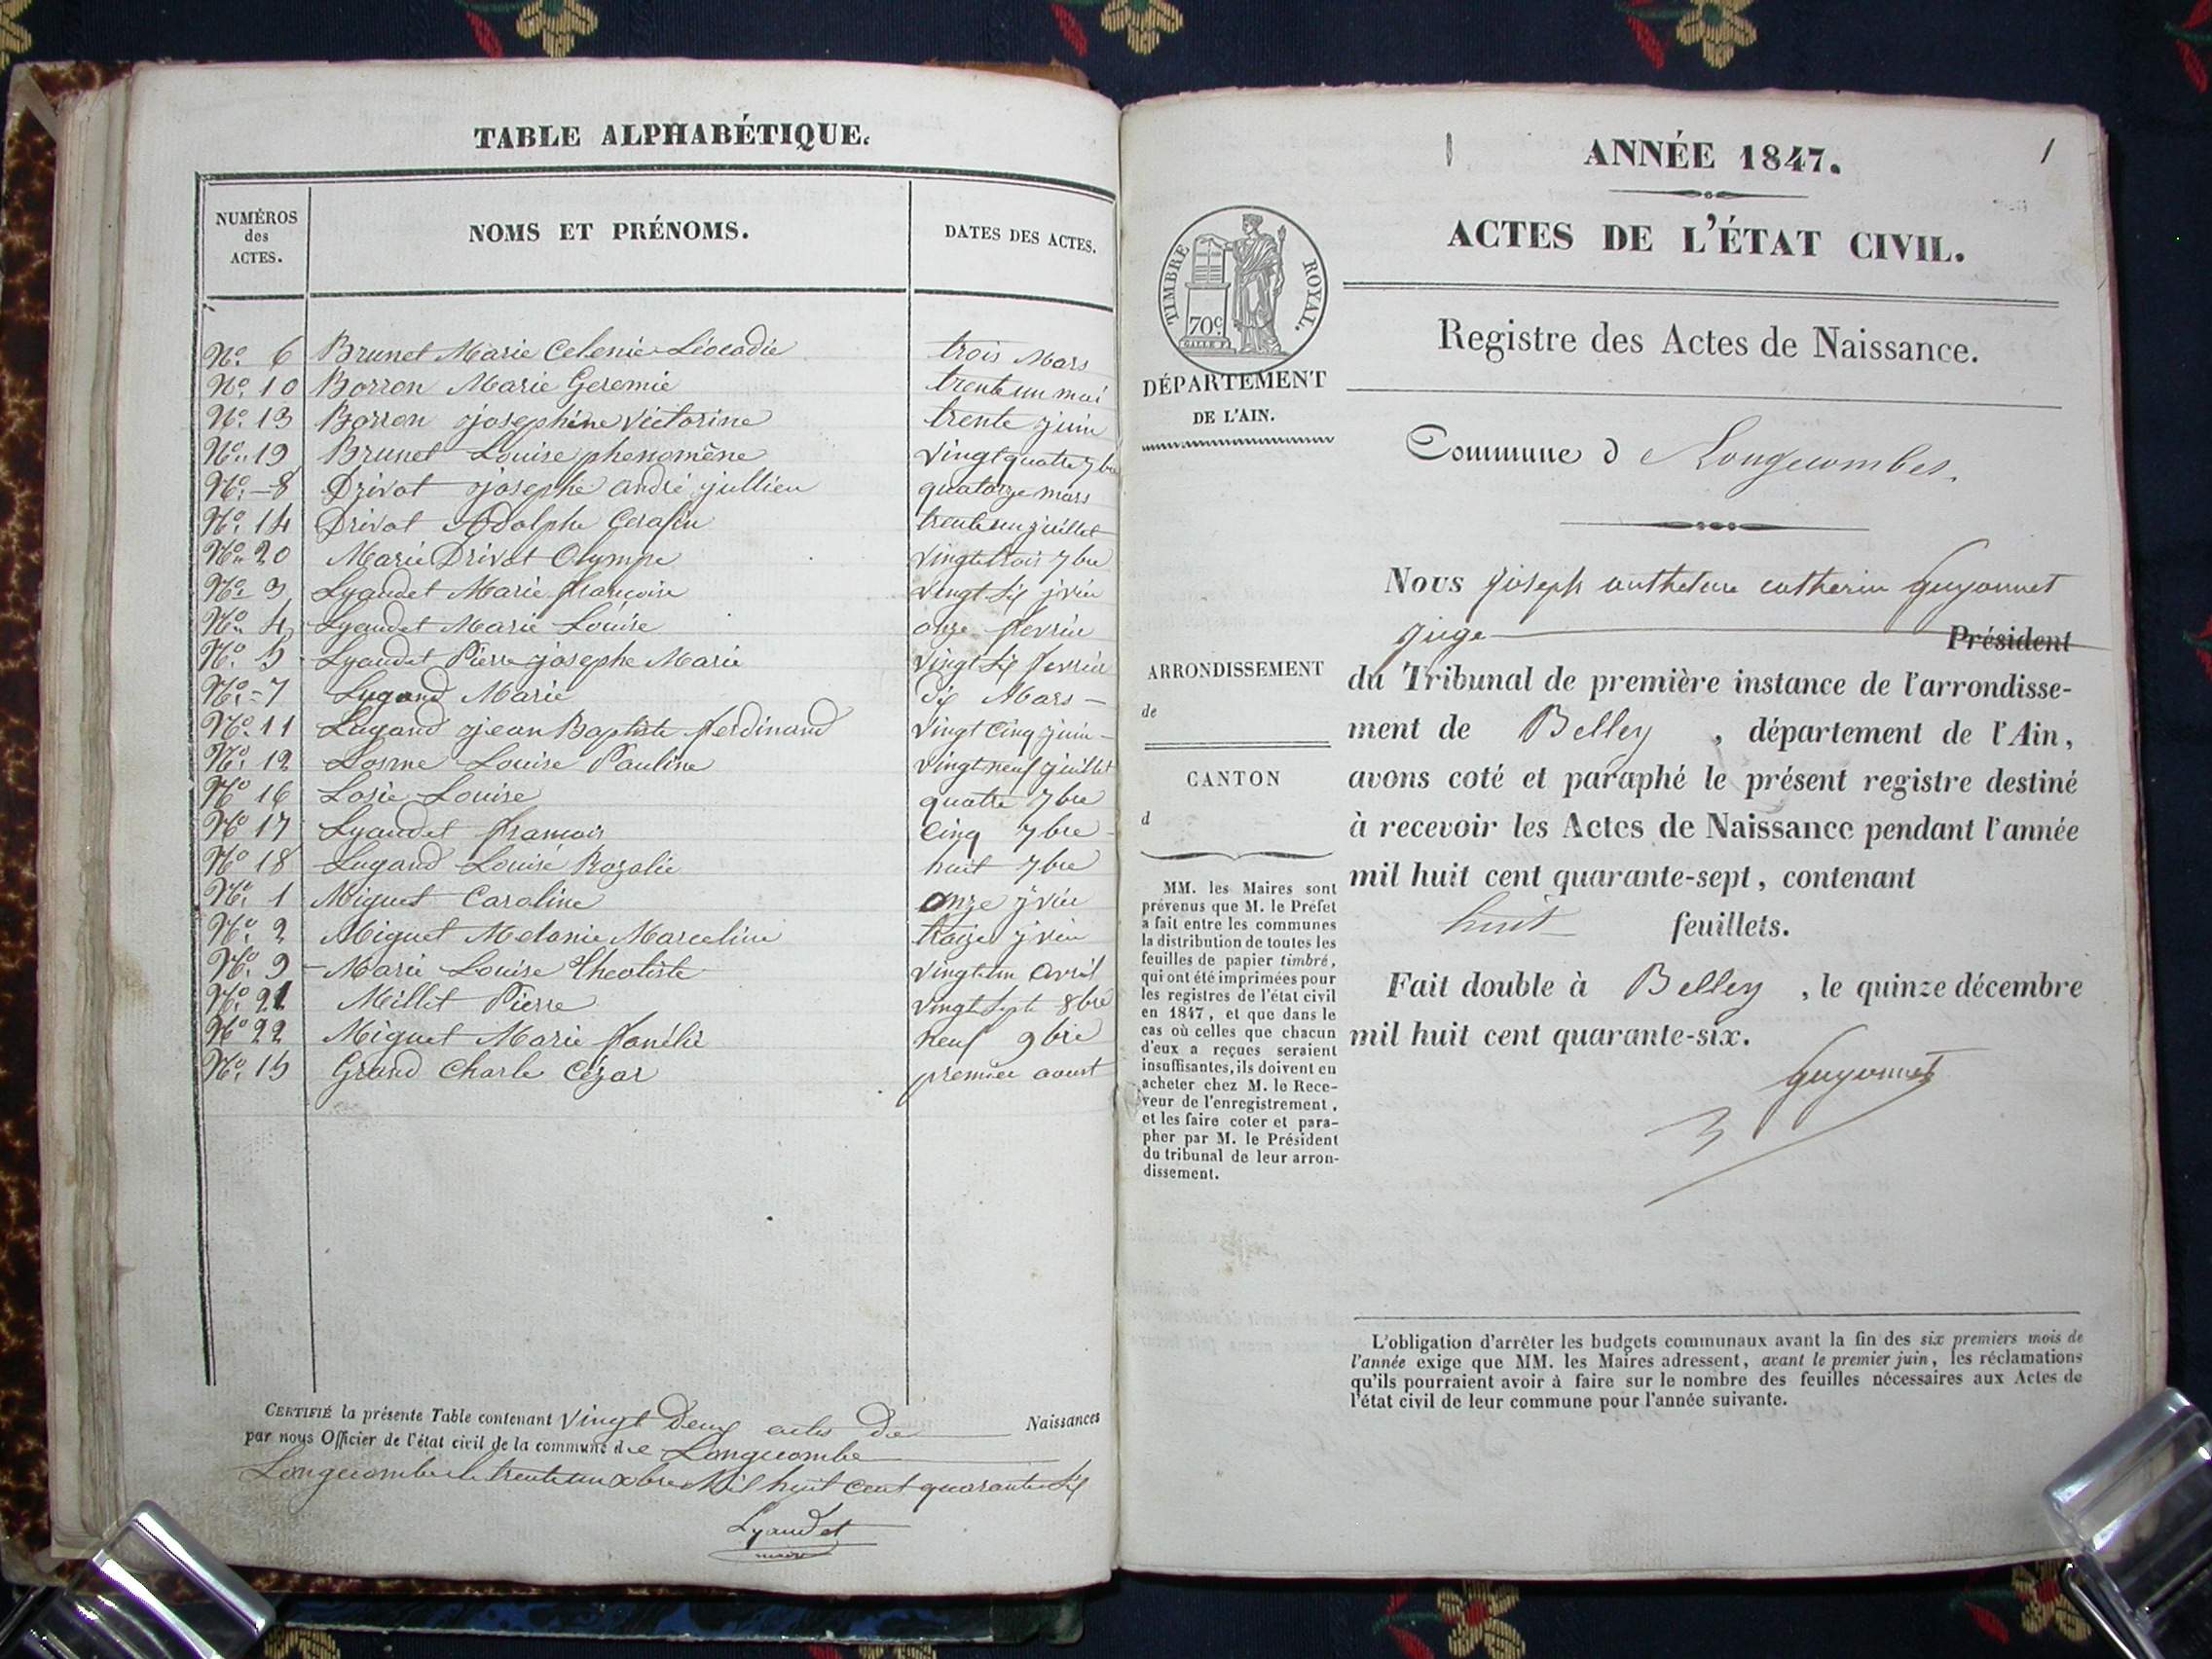 TABLE ALPHABÉTIQUE.
NUMÉROS
des
ACTES.
NOMS ET PRÉNOMS.
DATES DES ACTES.
No. 6 Brunet Marie Celenie Léocadie trois Mars
No. 10 Borron Marie Geremie trente un mai
No. 13 Borron josephine Victorine trente juin
No. 19 Brunet Louise phenomène Vingt quatre 7bre
No. 8 Drivot josephe andré jullien quatorze mars
No. 14 Drivot Adolphe Cerafin trente un juillet
No. 20 Marie Drivot Olympe Vingt trois 7bre
No. 3 Lyaudet Marie françoise Vingt Six jvier
No. 4 Lyaudet Marie Louise onze fevrier
No. 5 Lyaudet Pierre josephe Marie Vingt Six fevrier
No. 7 Lugand Marie dix Mars
No. 11 Lugand jean Baptiste ferdinand Vingt Cinq juin
No. 12 Louise Pauline Vingt neuf juillet
No 16 Losie Louise quatre 7bre
No 17 Lyaudet francois Cinq 7bre
No 18 Lugand Louise Rozalie huit 7bre
No. 1 Miguet Caroline Onze jvier
No. 2 Miguet Melanie Marceline traize jvier
No. 9 Marie Louise Theotiste Vingt un Avril
No. 21 Millet Pierre Vingt Sept 8bre
No 22 Miguet Marie fanélie neuf 9bre
No. 15 Grand Charle Cézar premier aoust
CERTIFIÉ la présente Table contenant Vingt Deux actes De Naissances
par nous Officier de l'état civil de la commune de Longecombe
Longecombe le trente un xbre Mil huit Cent quarante Six
Lyaudet
maire
1
ANNÉE 1847.
1
ACTES DE L'ÉTAT CIVIL.
TIMBRE ROYAL.
70c
DÉPARTEMENT
DE L'AIN.
Registre des Actes de Naissance.
Commune d Longecombes.
Nous joseph anthelme catherin Guyonnet
juge Président
du Tribunal de première instance de l'arrondisse-
ment de Belley, département de l'Ain,
avons coté et paraphé le présent registre destiné
à recevoir les Actes de Naissance pendant l'année
mil huit cent quarante-sept, contenant
huit feuillets.
Fait double à Belley, le quinze décembre
mil huit cent quarante-six.
Guyonnet
ARRONDISSEMENT
de
CANTON
d
MM. les Maires sont
prévenus que M. le Préfet
a fait entre les communes
la distribution de toutes les
feuilles de papier timbré,
qui ont été imprimées pour
les registres de l'état civil
en 1847, et que dans le
cas où celles que chacun
d'eux a reçues seraient
insuffisantes, ils doivent en
acheter chez M. le Rece-
veur de l'enregistrement,
et les faire coter et para-
pher par M. le Président
du tribunal de leur arron-
dissement.
L'obligation d'arrêter les budgets communaux avant la fin des six premiers mois de
l'année exige que MM. les Maires adressent, avant le premier juin, les réclamations
qu'ils pourraient avoir à faire sur le nombre des feuilles nécessaires aux Actes de
l'état civil de leur commune pour l'année suivante.